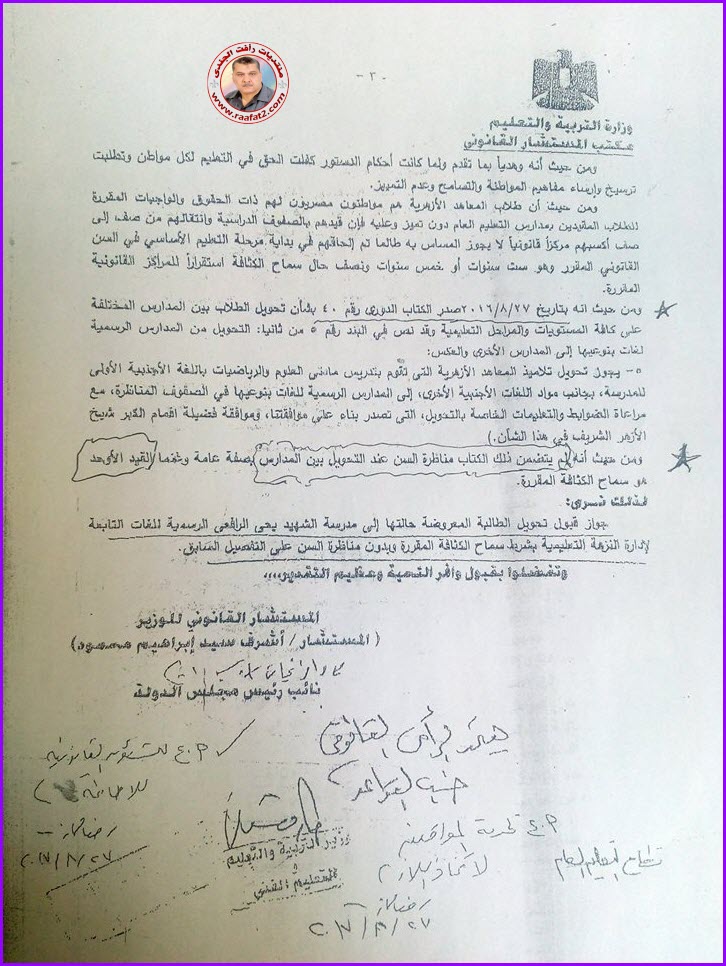 منتديات رأفت الجندى
www.raafat2.com
- ٣ -
وزارة التربية والتعليم
مكتب المستشار القانوني
ومن حيث أنه وهدياً بما تقدم ولما كانت أحكام الدستور كفلت الحق في التعليم لكل مواطن وتطلبت
ترسيخ وإرساء مفاهيم المواطنة والتسامح وعدم التمييز.
ومن حيث أن طلاب المعاهد الأزهرية هم مواطنون مصريون لهم ذات الحقوق والواجبات المقررة
للطلاب المقيدين بمدارس التعليم العام دون تميز وعليه فإن قيدهم بالصفوف الدراسية وانتقالهم من صف إلى
صف أكسبهم مركزاً قانونياً لا يجوز المساس به طالما تم إلحاقهم في بداية مرحلة التعليم الأساسي في السن
القانوني المقرر وهو ست سنوات أو خمس سنوات ونصف حال سماح الكثافة استقراراً للمراكز القانونية
المقررة.
ومن حيث انه بتاريخ ٢٠١٦/٨/٢٧ صدر الكتاب الدورى رقم ٤٠ بشأن تحويل الطلاب بين المدارس المختلفة
على كافة المستويات والمراحل التعليمية وقد نص في البند رقم ٥ من ثانيا: التحويل من المدارس الرسمية
لغات بنوعيها إلى المدارس الأخرى والعكس:
٥- يجوز تحويل تلاميذ المعاهد الأزهرية التى تقوم بتدريس مادتى العلوم والرياضيات باللغة الأجنبية الأولى
للمدرسة، بجانب مواد اللغات الأجنبية الأخرى، إلى المدارس الرسمية للغات بنوعيها في الصفوف المناظرة، مع
مراعاة الضوابط والتعليمات الخاصة بالتحويل، التى تصدر بناء على موافقتنا، وموافقة فضيلة الإمام الأكبر شيخ
الأزهر الشريف في هذا الشأن.)
ومن حيث أنه لم يتضمن ذلك الكتاب مناظرة السن عند التحويل بين المدارس بصفة عامة وإنما القيد الأوحد
هو سماح الكثافة المقررة.
لذلك نرى:
جواز قبول تحويل الطالبة المعروضة حالتها إلى مدرسة الشهيد يحى الرافعى الرسمية للغات التابعة
لإدارة النزهة التعليمية بشرط سماح الكثافة المقررة وبدون مناظرة السن على التفصيل السابق.
وتفضلوا بقبول وافر التحية وعظيم التقدير،،،،
المستشار القانوني للوزير
( المستشار/ أشرف سيد إبراهيم محمود)
نائب رئيس مجلس الدولة
يعتمد الرأى القانونى
حسب القواعد
للشئون القانونية
وزير التربية والتعليم
و
التعليم الفنى
٢٠١٧/٨/٢٧
قطاع التعليم العام
٢٠١٧/٨/٢٧